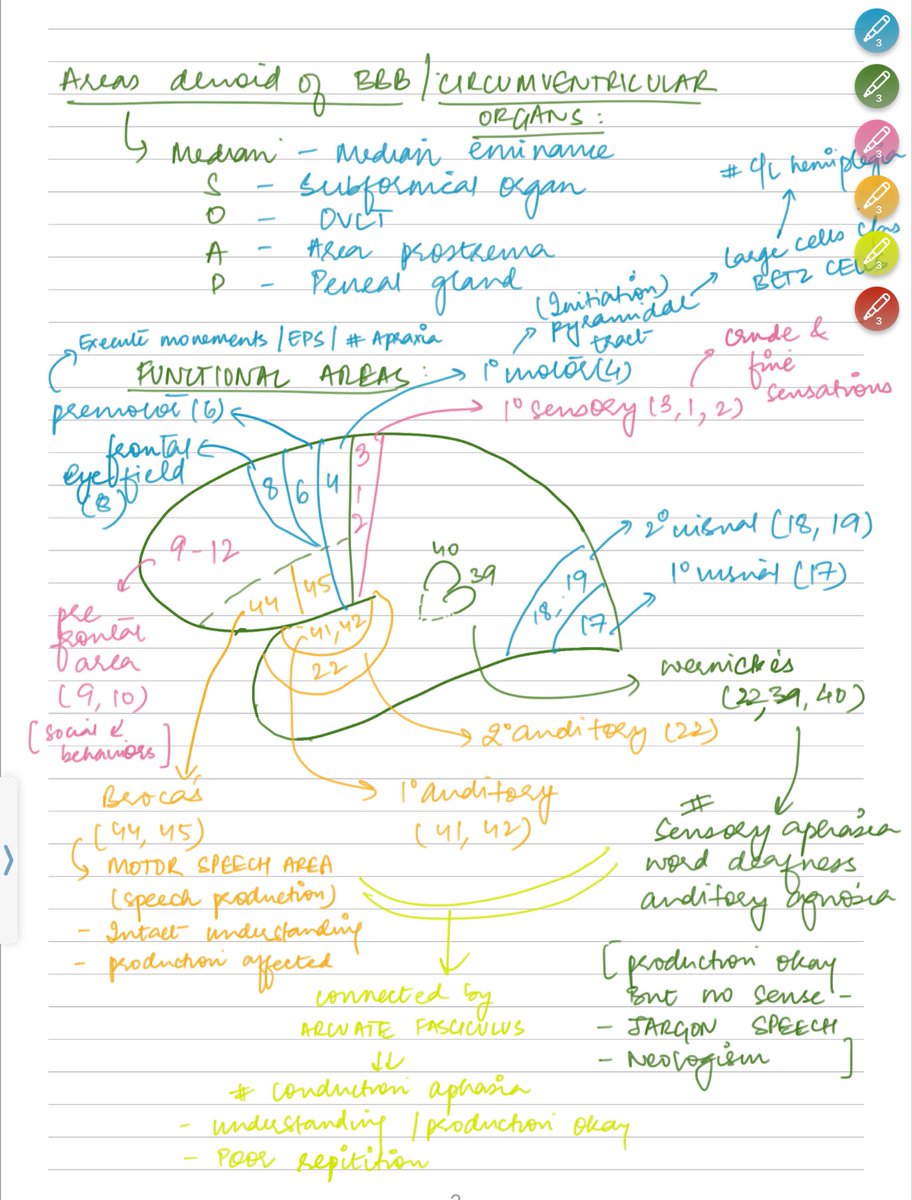 Areas devoid of BBB / CIRCUMVENTRICULAR
ORGANS :
Median - Median eminance
S - Subfornical organ
O - OVLT
A - Area prostrema
P - Peneal gland
# C/L hemiplegia
Large cells c/as
BETZ CELLS
(Initiation)
pyramidal
tract
Execute movements / EPS / # Apraxia
FUNCTIONAL AREAS :
1° motor (4)
crude &
fine
sensations
premotor (6)
1° sensory (3, 1, 2)
frontal
eye field
(8)
8 6 4 3 1 2
9-12
44 45
41, 42
22
40
39
18, 19
17
2° visual (18, 19)
1° visual (17)
pre
frontal
area
(9, 10)
[social &
behaviors]
wernickes
(22, 39, 40)
2° auditory (22)
1° auditory
(41, 42)
Brocas
(44, 45)
MOTOR SPEECH AREA
(speech production)
- Intact understanding
- production affected
#
Sensory aphasia
word deafness
auditory agnosia
[production okay
But no sense -
- JARGON SPEECH
- Neologism ]
connected by
ARCUATE FASCICULUS
# conduction aphasia
- understanding / production okay
- Poor repitition
3
3
3
3
3
3